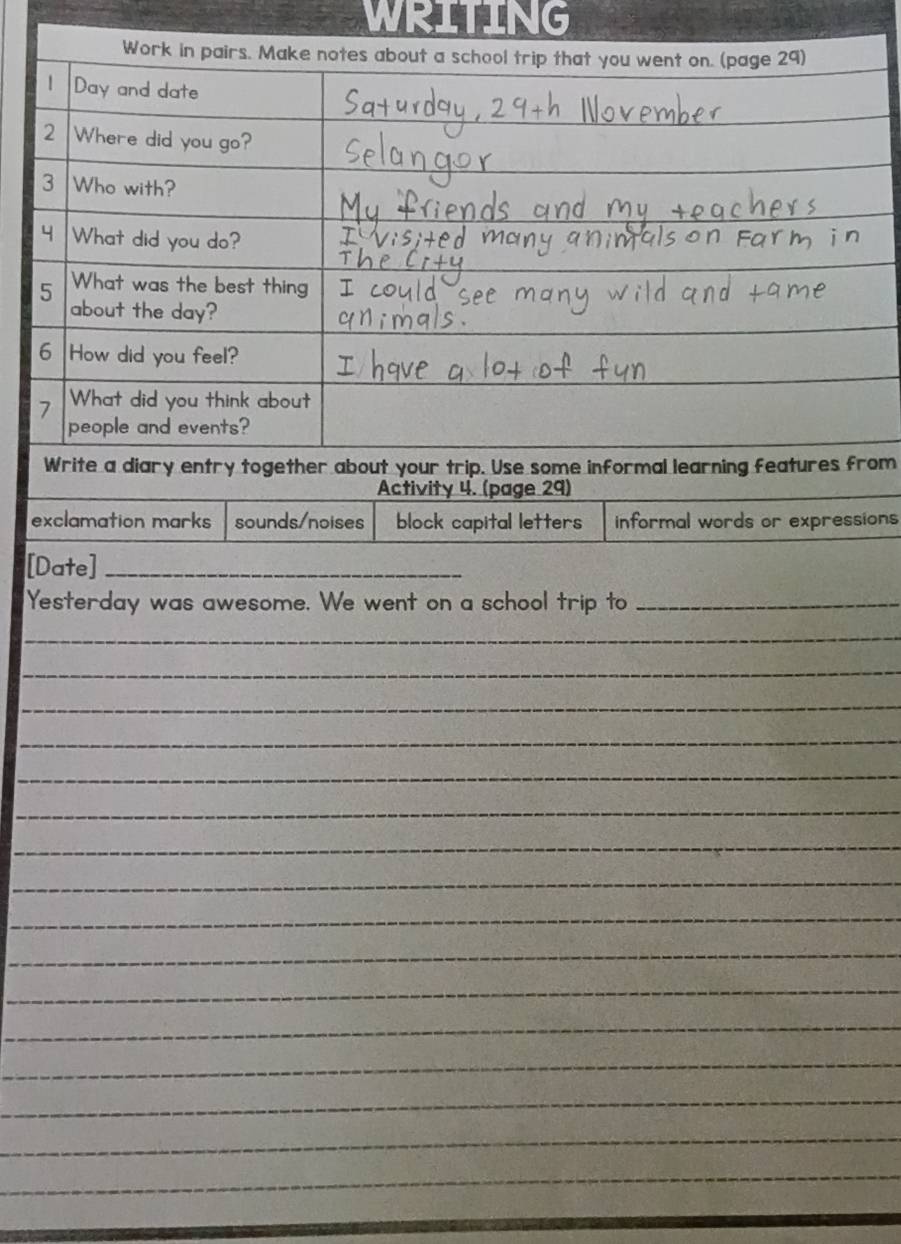 WRITING
Work in pairs. Make notes about a school trip that you went on. (page 29)
1 Day and date Saturday, 29th November
2 Where did you go? Selangor
3 Who with? My friends and my teachers
4 What did you do? I visited many animals on Farm in
The City
5 What was the best thing I could see many wild and tame
about the day? animals.
6 How did you feel? I have a lot of fun
7 What did you think about
people and events?
Write a diary entry together about your trip. Use some informal learning features from
Activity 4. (page 29)
exclamation marks sounds/noises block capital letters informal words or expressions
[Date] ______________________
Yesterday was awesome. We went on a school trip to ______________